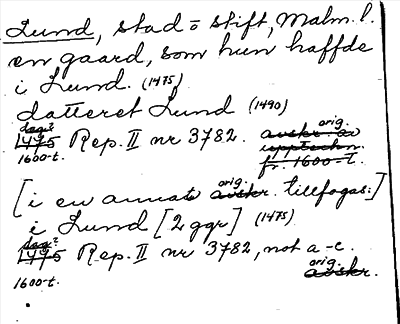 Lund, stad o stift, Malm. l.
en gaard, som hun haffde
i Lund. (1475)
datteret Lund (1490)
dag? orig.
1475 Rep. II nr 3782. avskr. av
1600-t. upptechn.
fr. 1600-t.
orig.
[i en annat avskr. tillfogas:]
i Lund [2 ggr] (1475)
dag?
1475 Rep. II nr 3782, not a-c.
orig.
1600-t. avskr.